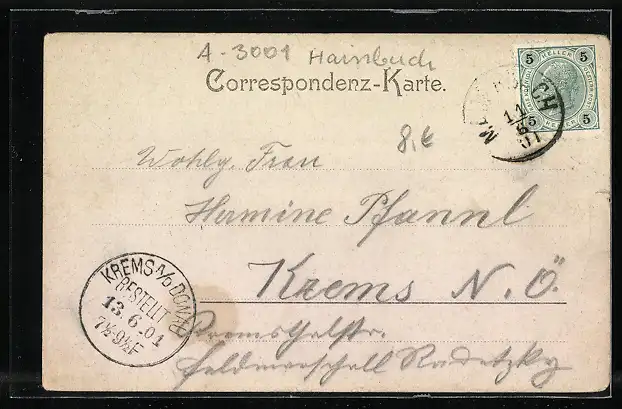 A-3001 Hainbuch
Correspondenz-Karte.
5 HELLER 5
5 HELLER 5
11
6
01
8,€
Wohlg. Frau
Hermine Pfannl
Krems N.Ö.
KREMS A/D DONAU
BESTELLT
13.6.01
7½-9½F
Feldmarschall Radetzky